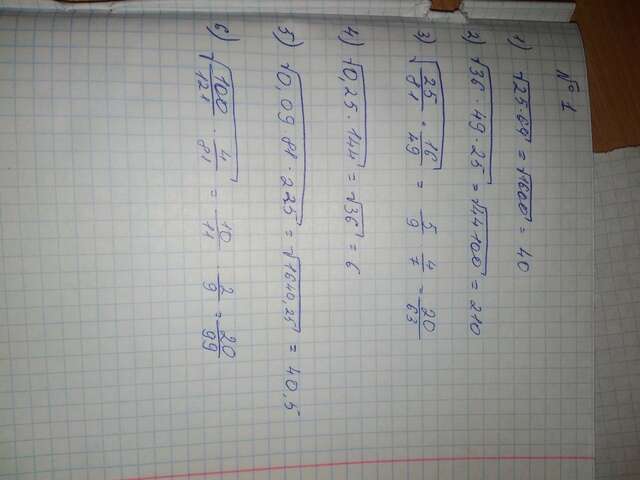 № 1
1) √25·64 = √1600 = 40
2) √36·49·25 = √44100 = 210
3) √25/81 · 16/49 = 5/9 4/7 = 20/63
4) √0,25·144 = √36 = 6
5) √0,09·81·225 = √1640,25 = 40,5
6) √100/121 · 4/81 = 10/11 2/9 = 20/99